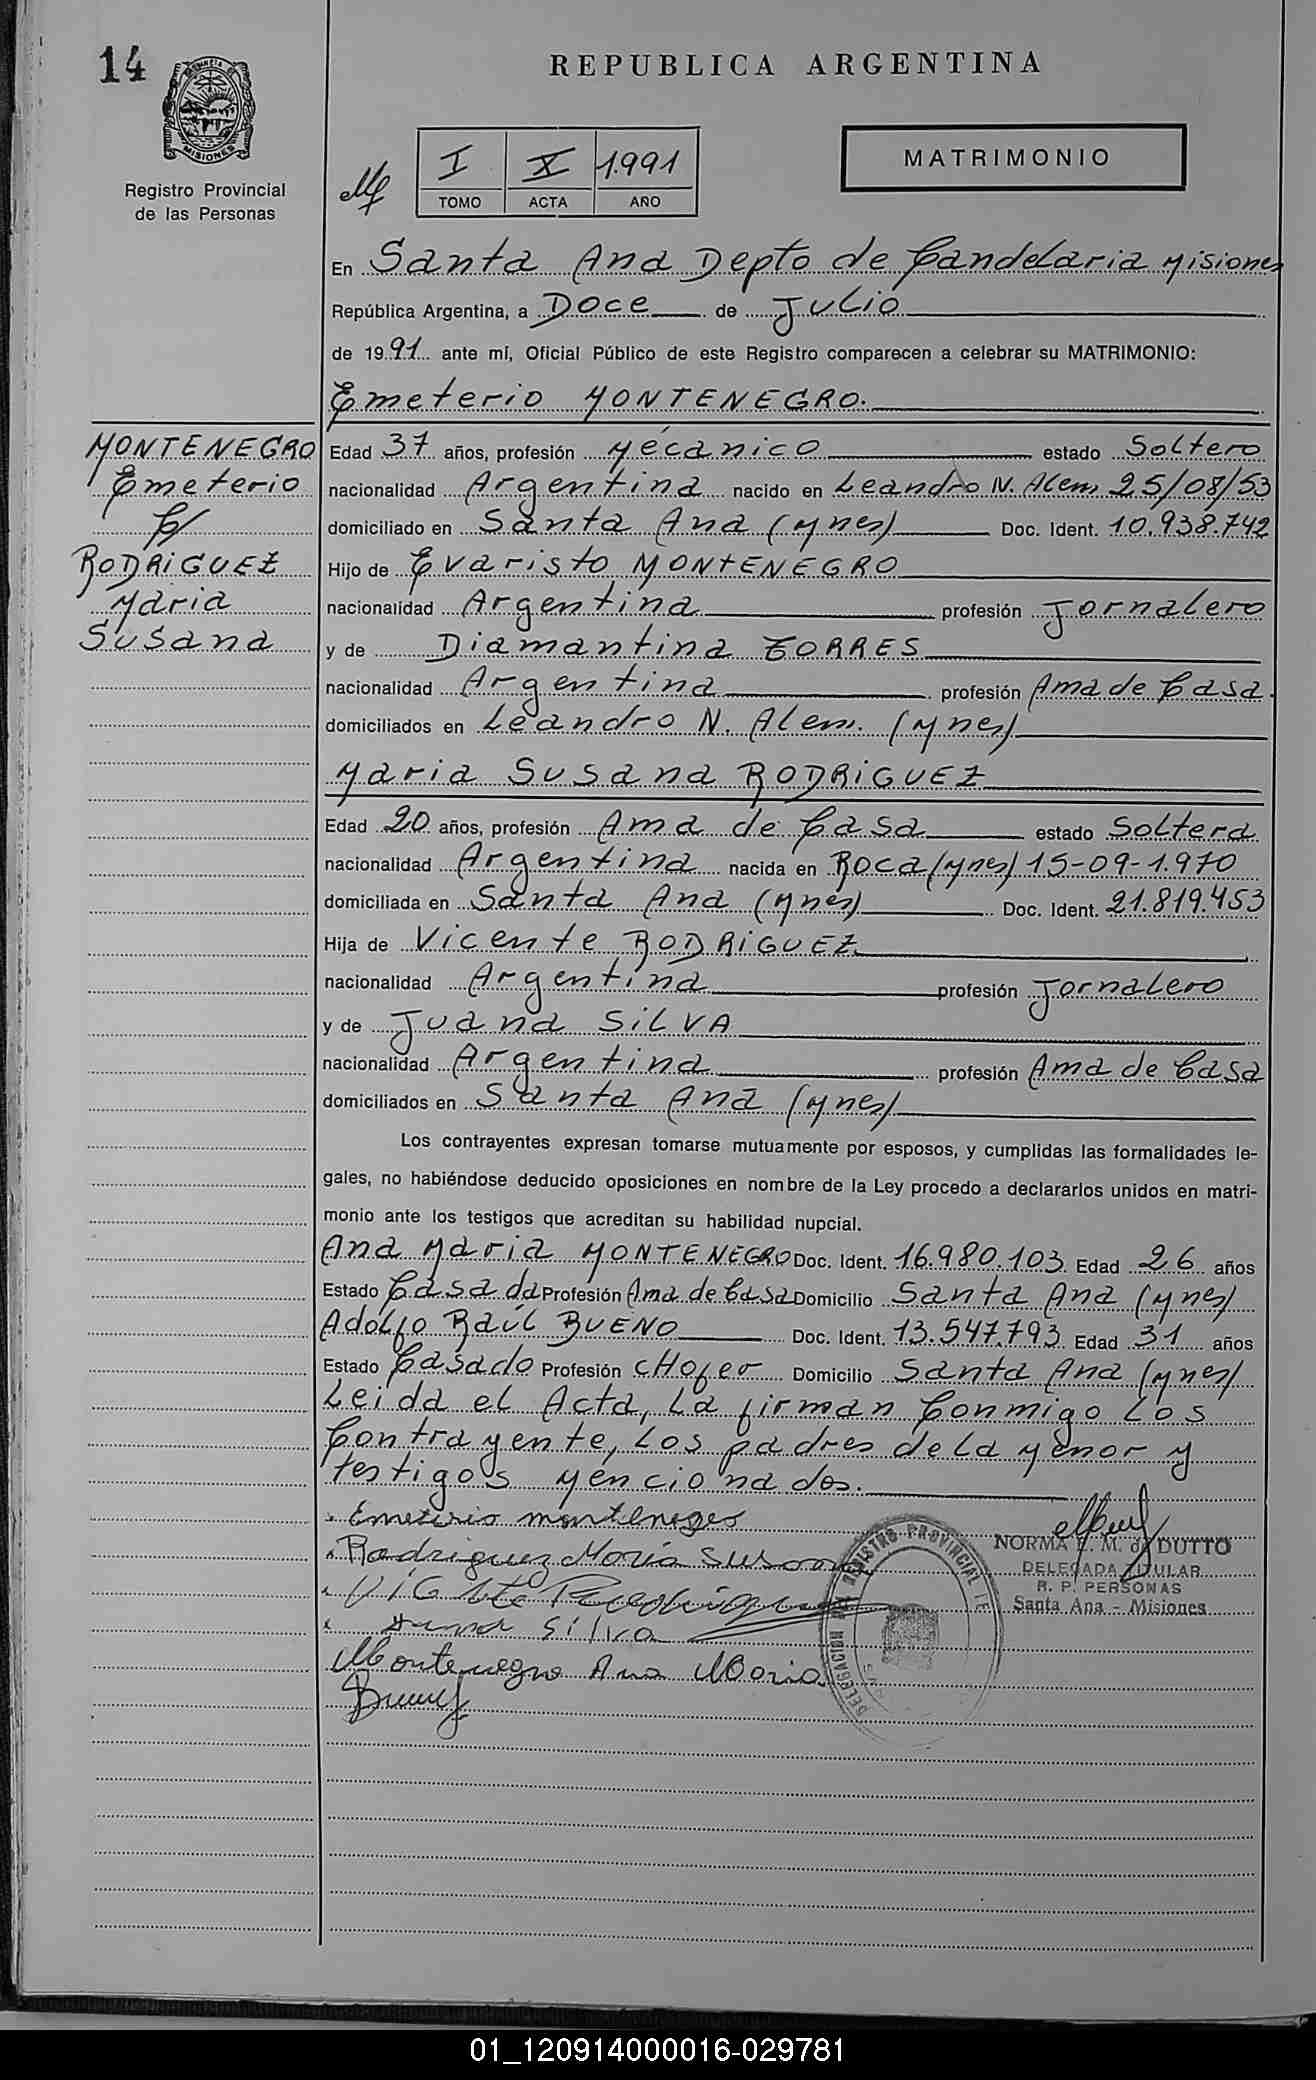 14
REPUBLICA ARGENTINA
PROVINCIA DE
MISIONES
Registro Provincial
de las Personas
I X 1.991
TOMO ACTA AÑO
MATRIMONIO
En Santa Ana Depto de Candelaria Misiones
República Argentina, a Doce de Julio
de 1991 ante mí, Oficial Público de este Registro comparecen a celebrar su MATRIMONIO:
Emeterio MONTENEGRO.
MONTENEGRO
Emeterio
C/
RODRIGUEZ
Maria
Susana
Edad 37 años, profesión Mécanico estado Soltero
nacionalidad Argentina nacido en Leandro N. Alem 25/08/53
domiciliado en Santa Ana (Mnes) Doc. Ident. 10.938.742
Hijo de Evaristo MONTENEGRO
nacionalidad Argentina profesión Jornalero
y de Diamantina TORRES
nacionalidad Argentina profesión Ama de Casa.
domiciliados en Leandro N. Alem. (Mnes)
Maria Susana RODRIGUEZ
Edad 20 años, profesión Ama de Casa estado Soltera
nacionalidad Argentina nacida en Roca (Mnes) 15-09-1.970
domiciliada en Santa Ana (Mnes) Doc. Ident. 21.819.453
Hija de Vicente RODRIGUEZ
nacionalidad Argentina profesión Jornalero
y de Juana SILVA
nacionalidad Argentina profesión Ama de Casa
domiciliados en Santa Ana (Mnes)
Los contrayentes expresan tomarse mutuamente por esposos, y cumplidas las formalidades le-
gales, no habiéndose deducido oposiciones en nombre de la Ley procedo a declararlos unidos en matri-
monio ante los testigos que acreditan su habilidad nupcial.
Ana Maria MONTENEGRO Doc. Ident. 16.980.103 Edad 26 años
Estado Casada Profesión Ama de Casa Domicilio Santa Ana (Mnes)
Adolfo Raúl BUENO Doc. Ident. 13.547.793 Edad 31 años
Estado Casado Profesión CHofer Domicilio Santa Ana (Mnes)
Leida el Acta, La firman Conmigo Los
Contrayente, Los padres de La Menor y
testigos Mencionados.
Emeterio montenegro
Rodriguez Maria Susana
Vicente Rodriguez
Juana Silva
Montenegro Ana Maria
NORMA M. de DUTTO
DELEGADA TITULAR
R. P. PERSONAS
Santa Ana - Misiones
DELEGACION DEL REGISTRO PROVINCIAL DE
01_120914000016-029781